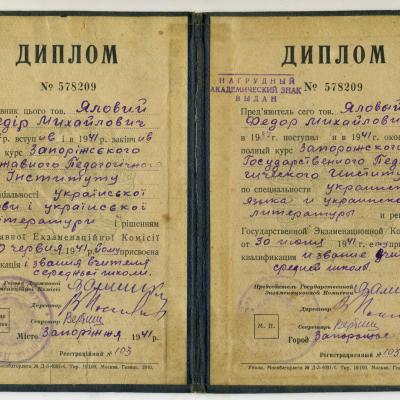 ДИПЛОМ
№ 578209
вник цього тов. Яловий
едір Михайлович
р. вступив і в 1941 р. закінчив
курс Запорізького
жавного Педагогічного
Інституту
ціяльності української
ви і української
ітератури і рішенням
авної Екзаменаційної Комісії
0 червня 1941 р. йому присвоєна
кація і звання вчителя
середньої школи.
Директор
Секретар
Місто Запоріжжя 1941 р.
Реєстраційний № 103
ДИПЛОМ
№ 578209
НАГРУДНЫЙ
АКАДЕМИЧЕСКИЙ ЗНАК
ВЫДАН
Пред'явитель сего тов. Яловый
Федор Михайлович
в 19 г. поступил и в 1941 г. окон
полный курс Запорожского
Государственного Педаго
гического Института
по специальности украинск
языка и украинско
литературы и реш
Государственной Экзаменационной Ко
от 30 июня 1941 г. ему
квалификация и звание учи
средней школы
Председатель Государственной
Экзаменационной
Директор
Секретарь
М. П.
Город Запорожье
Регистрационный № 103